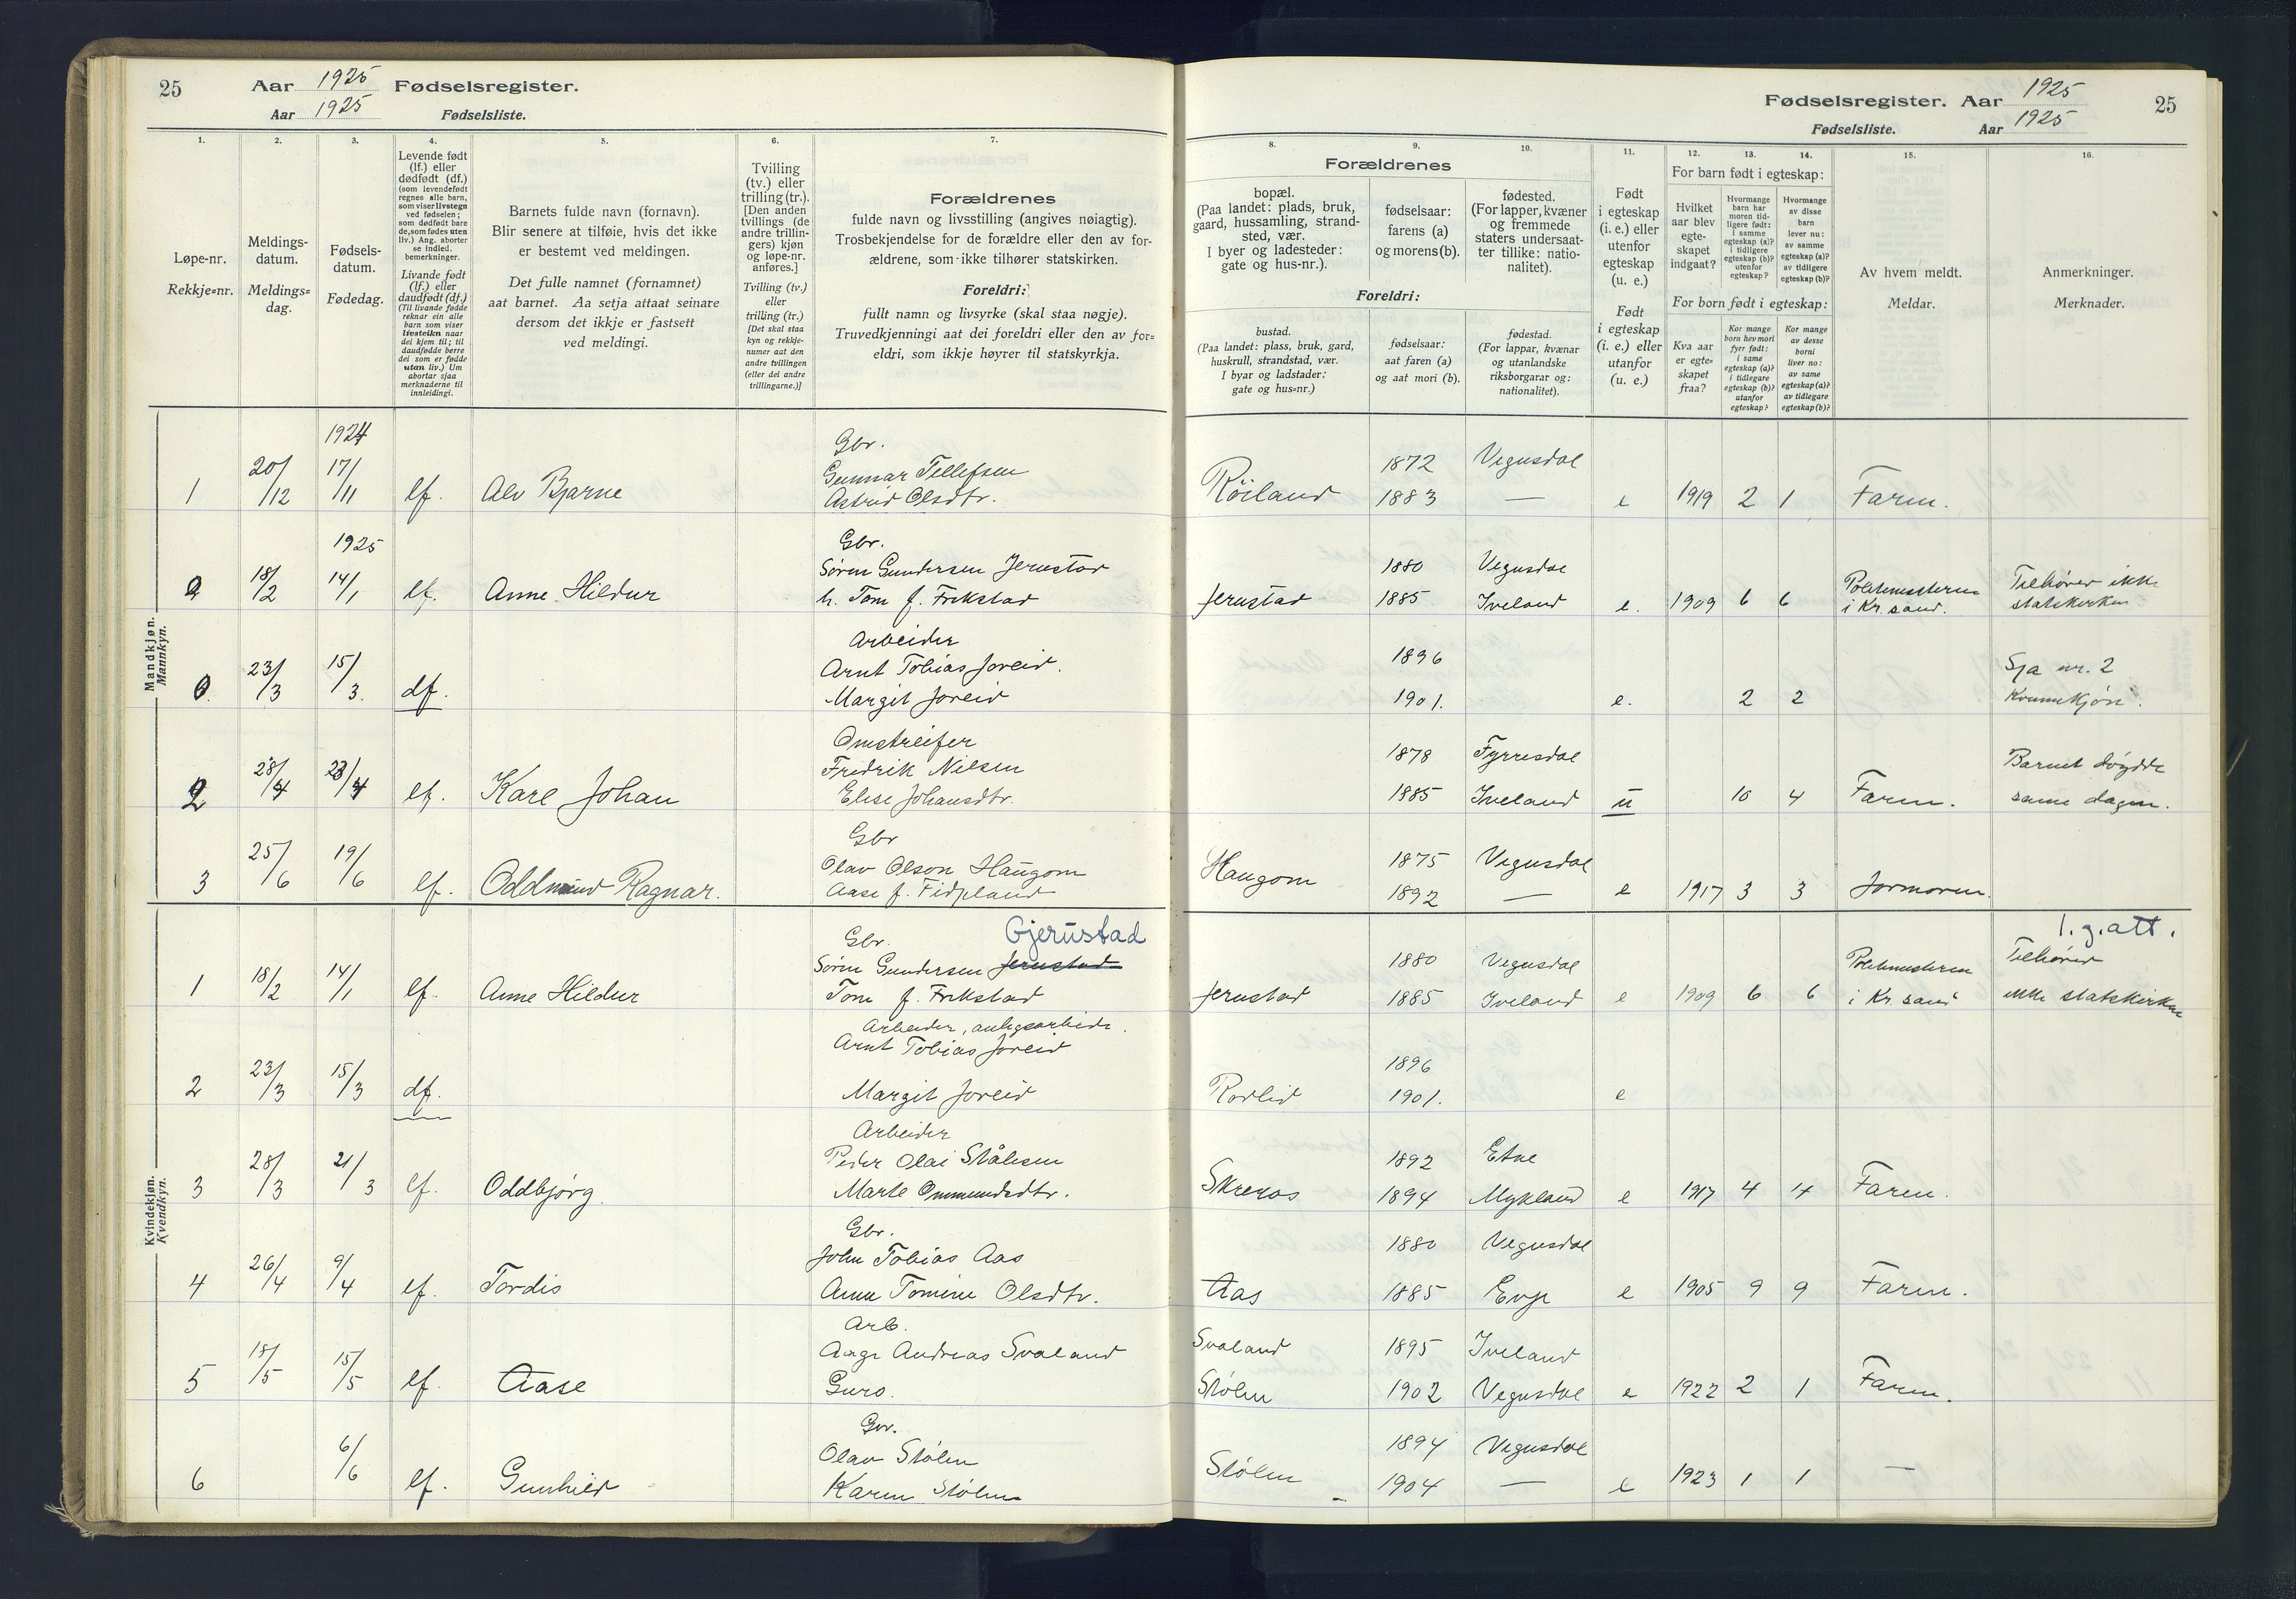 25
Aar 1925 Fødselsregister.
Aar 1925 Fødselsliste.
1.
2.
3.
4.
5.
6.
7.
Løpe-nr.
Rekkje=nr.
Meldings-
datum.
Meldings=
dag.
Fødsels-
datum.
Fødedag.
Levende født
(lf.) eller
dødfødt (df.)
(som levendefødt
regnes alle barn,
som viser livstegn
ved fødselen;
som dødfødt bare
de, som fødes uten
liv.) Ang. aborter
se indled.
bemerkninger.
Livande født
(lf.) eller
daudfødt (df.)
(Til livande fødde
reknar ein alle
barn som viser
livsteikn naar
dei kjem til; til
daudfødde berre
dei som er fødde
utan liv.) Um
abortar sjaa
merknaderne til
innleidingi.
Barnets fulde navn (fornavn).
Blir senere at tilføie, hvis det ikke
er bestemt ved meldingen.
Det fulle namnet (fornamnet)
aat barnet. Aa setja attaat seinare
dersom det ikkje er fastsett
ved meldingi.
Tvilling
(tv.) eller
trilling (tr.).
[Den anden
tvillings (de
andre trillin-
gers) kjøn
og løpe-nr.
anføres.]
Tvilling (tv.)
eller
trilling (tr.)
[Det skal staa
kyn og rekkje-
numer aat den
andre tvillingen
(eller dei andre
trillingarne.)]
Forældrenes
fulde navn og livsstilling (angives nøiagtig).
Trosbekjendelse for de forældre eller den av for-
ældrene, som ikke tilhører statskirken.
Foreldri:
fullt namn og livsyrke (skal staa nøgje).
Truvedkjenningi aat dei foreldri eller den av for=
eldri, som ikkje høyrer til statskyrkja.
Mandkjøn.
Mannkyn.
1924
1 20/12 17/11 lf. Alv Bjarne
Gbr.
Gunnar Tellefsen
Astrid Olsdtr.
1925
18/2 14/1 lf. Anne Hildur
Gbr.
Søren Gundersen Jerustad
h. Tom f. Frikstad
0 23/3 15/3. df.
Arbeider
Arnt Tobias Joreid.
Margit Joreid
2 28/4 23/4 lf. Kare Johan
Omstreifer
Fredrik Nilsen
Elise Johansdtr.
3 25/6 19/6 lf. Oddmund Ragnar.
Gbr
Olav Olson Haugom
Aase f. Fidjeland
Kvindekjøn.
Kvendkyn.
1 18/2 14/1 lf. Anne Hildur
Gbr. Gjerustad
Søren Gundersen Jerustad
Tom f. Frikstad
2 23/3 15/3 df.
Arbeider, anlegsarbeide.
Arnt Tobias Joreid
Margit Joreid
3 28/3 21/3 lf. Oddbjørg
Arbeider
Peder Olai Ståhesen
Marte Ommundsdtr.
4 26/4 9/4 lf. Tordis
Gbr.
John Tobias Aas
Anne Tomine Olsdtr.
5 18/5 15/5 lf. Aase
Arb.
Aage Andreas Svaland
Guro.
6 6/6 lf. Gunhild
Gbr.
Olav Stølen
Karen Stølen
Fødselsregister. Aar 1925 25
Fødselsliste. Aar 1925
8.
9.
10.
11.
12.
13.
14.
15.
16.
Forældrenes
bopæl.
(Paa landet: plads, bruk,
gaard, hussamling, strand-
sted, vær.
I byer og ladesteder:
gate og hus-nr.).
fødselsaar:
farens (a)
og morens (b).
fødested.
(For lapper, kvæner
og fremmede
staters undersaat-
ter tillike: natio-
nalitet).
Foreldri:
bustad.
(Paa landet: plass, bruk, gard,
huskrull, strandstad, vær.
I byar og ladstader:
gate og hus=nr.)
fødselsaar:
aat faren (a)
og aat mori (b).
fødestad.
(For lappar, kvænar
og utanlandske
riksborgarar og:
nationalitet).
Født
i egteskap
(i. e.) eller
utenfor
egteskap
(u. e.)
Født
i egteskap
(i. e.) eller
utanfor
(u. e.)
For barn født i egteskap:
Hvilket
aar blev
egte-
skapet
indgaat?
Hvormange
barn har
moren tid-
ligere født:
i samme
egteskap (a)?
i tidligere
egteskap (b)?
utenfor
egteskap?
Hvormange
av disse
barn
lever nu:
av samme
egteskap (a)?
av tidligere
egteskap (b)?
For born født i egteskap:
Kva aar
er egte=
skapet
fraa?
Kor mange
born hev mori
fyrr født:
i same
egteskap (a)?
i tidlegare
egteskap (b)?
utanfor
egteskap?
Kor mange
av desse
borni
liver no:
av same
egteskap (a)?
av tidlegare
egteskap (b)?
Av hvem meldt.
Meldar.
Anmerkninger.
Merknader.
Røiland 1872 Vegusdal
1883 — e 1919 2 1 Faren.
Jerustad 1880 Vegusdal
1885 Iveland e. 1909 6 6 Politimesteren
i Kr. sand.
Tilhører ikke
statskirken
1896
1901. e. 2 2
Sja nr. 2
Kvinnekjøn.
1878 Fyrresdal
1885 Iveland u 10 4 Faren.
Barnet døydde
same dagen.
Haugom 1875 Vegusdal
1892 — e 1917 3 3 Jormoren.
1.g.att.
Jerustad 1880 Vegusdal
1885 Iveland e 1909 6 6 Politimesteren
i Kr. sand
Tilhører
ikke statskirken
Rovlid 1896
1901. e
Skreros 1892 Etne
1894 Mykland e 1917 4 4 Faren.
Aas 1880 Vegusdal
1885 Evje e 1905 9 9 Faren.
Svaland 1895 Iveland
Stølen 1902 Vegusdal e 1922 2 1 Faren.
Stølen 1894 Vegusdal
1904 — e 1923 1 1 —